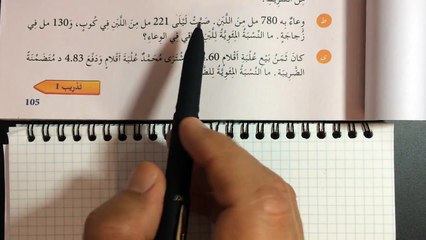 مِنَ الضَّرِيبَةِ.
ط وِعاءٌ بِهِ 780 مل مِنَ اللَّبَنِ. صَبَّتْ لَيْلَى 221 مل مِنَ اللَّبَنِ في كُوبٍ، وَ130 مل في
زُجاجَةٍ. ما النِّسْبَةُ المِئَوِيَّةُ لِلَّبَنِ في الوِعاءِ؟
ي كانَ ثَمَنُ بَيْعِ عُلْبَةِ أَقْلامٍ 4.60 مُحَمَّدٌ عُلْبَةَ أَقْلامٍ وَدَفَعَ 4.83 د مُتَضَمِّنَةً
الضَّرِيبَةَ. ما النِّسْبَةُ المِئَوِيَّةُ
تدريب 1
105